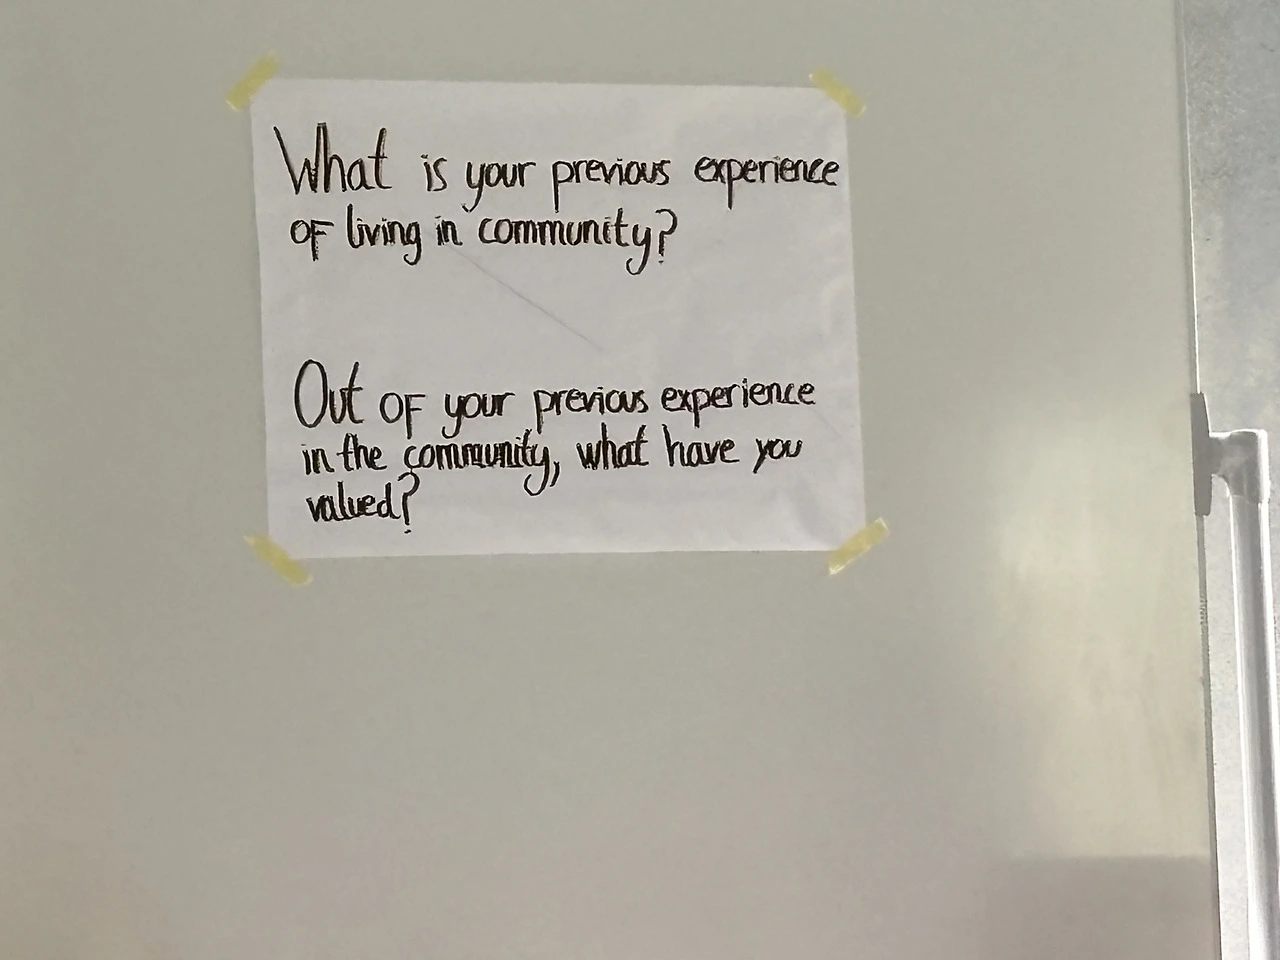 What is your previous experience
of living in community?
Out of your previous experience
in the community, what have you
valued?